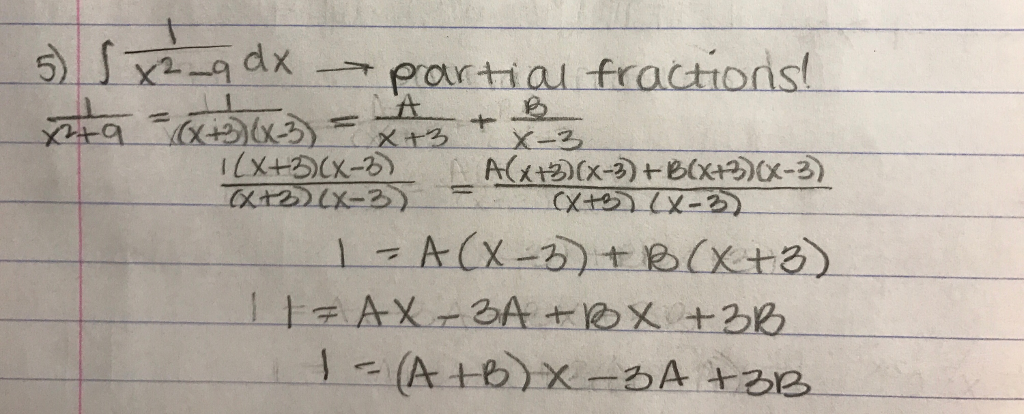 5) ∫ 1/(x²-9) dx → partial fractions!
1/(x²+9) = 1/((x+3)(x-3)) = A/(x+3) + B/(x-3)
1(x+3)(x-3)/((x+3)(x-3)) = (A(x+3)(x-3) + B(x+3)(x-3))/((x+3)(x-3))
1 = A(x-3) + B(x+3)
1 = Ax - 3A + Bx + 3B
1 = (A+B)x - 3A + 3B